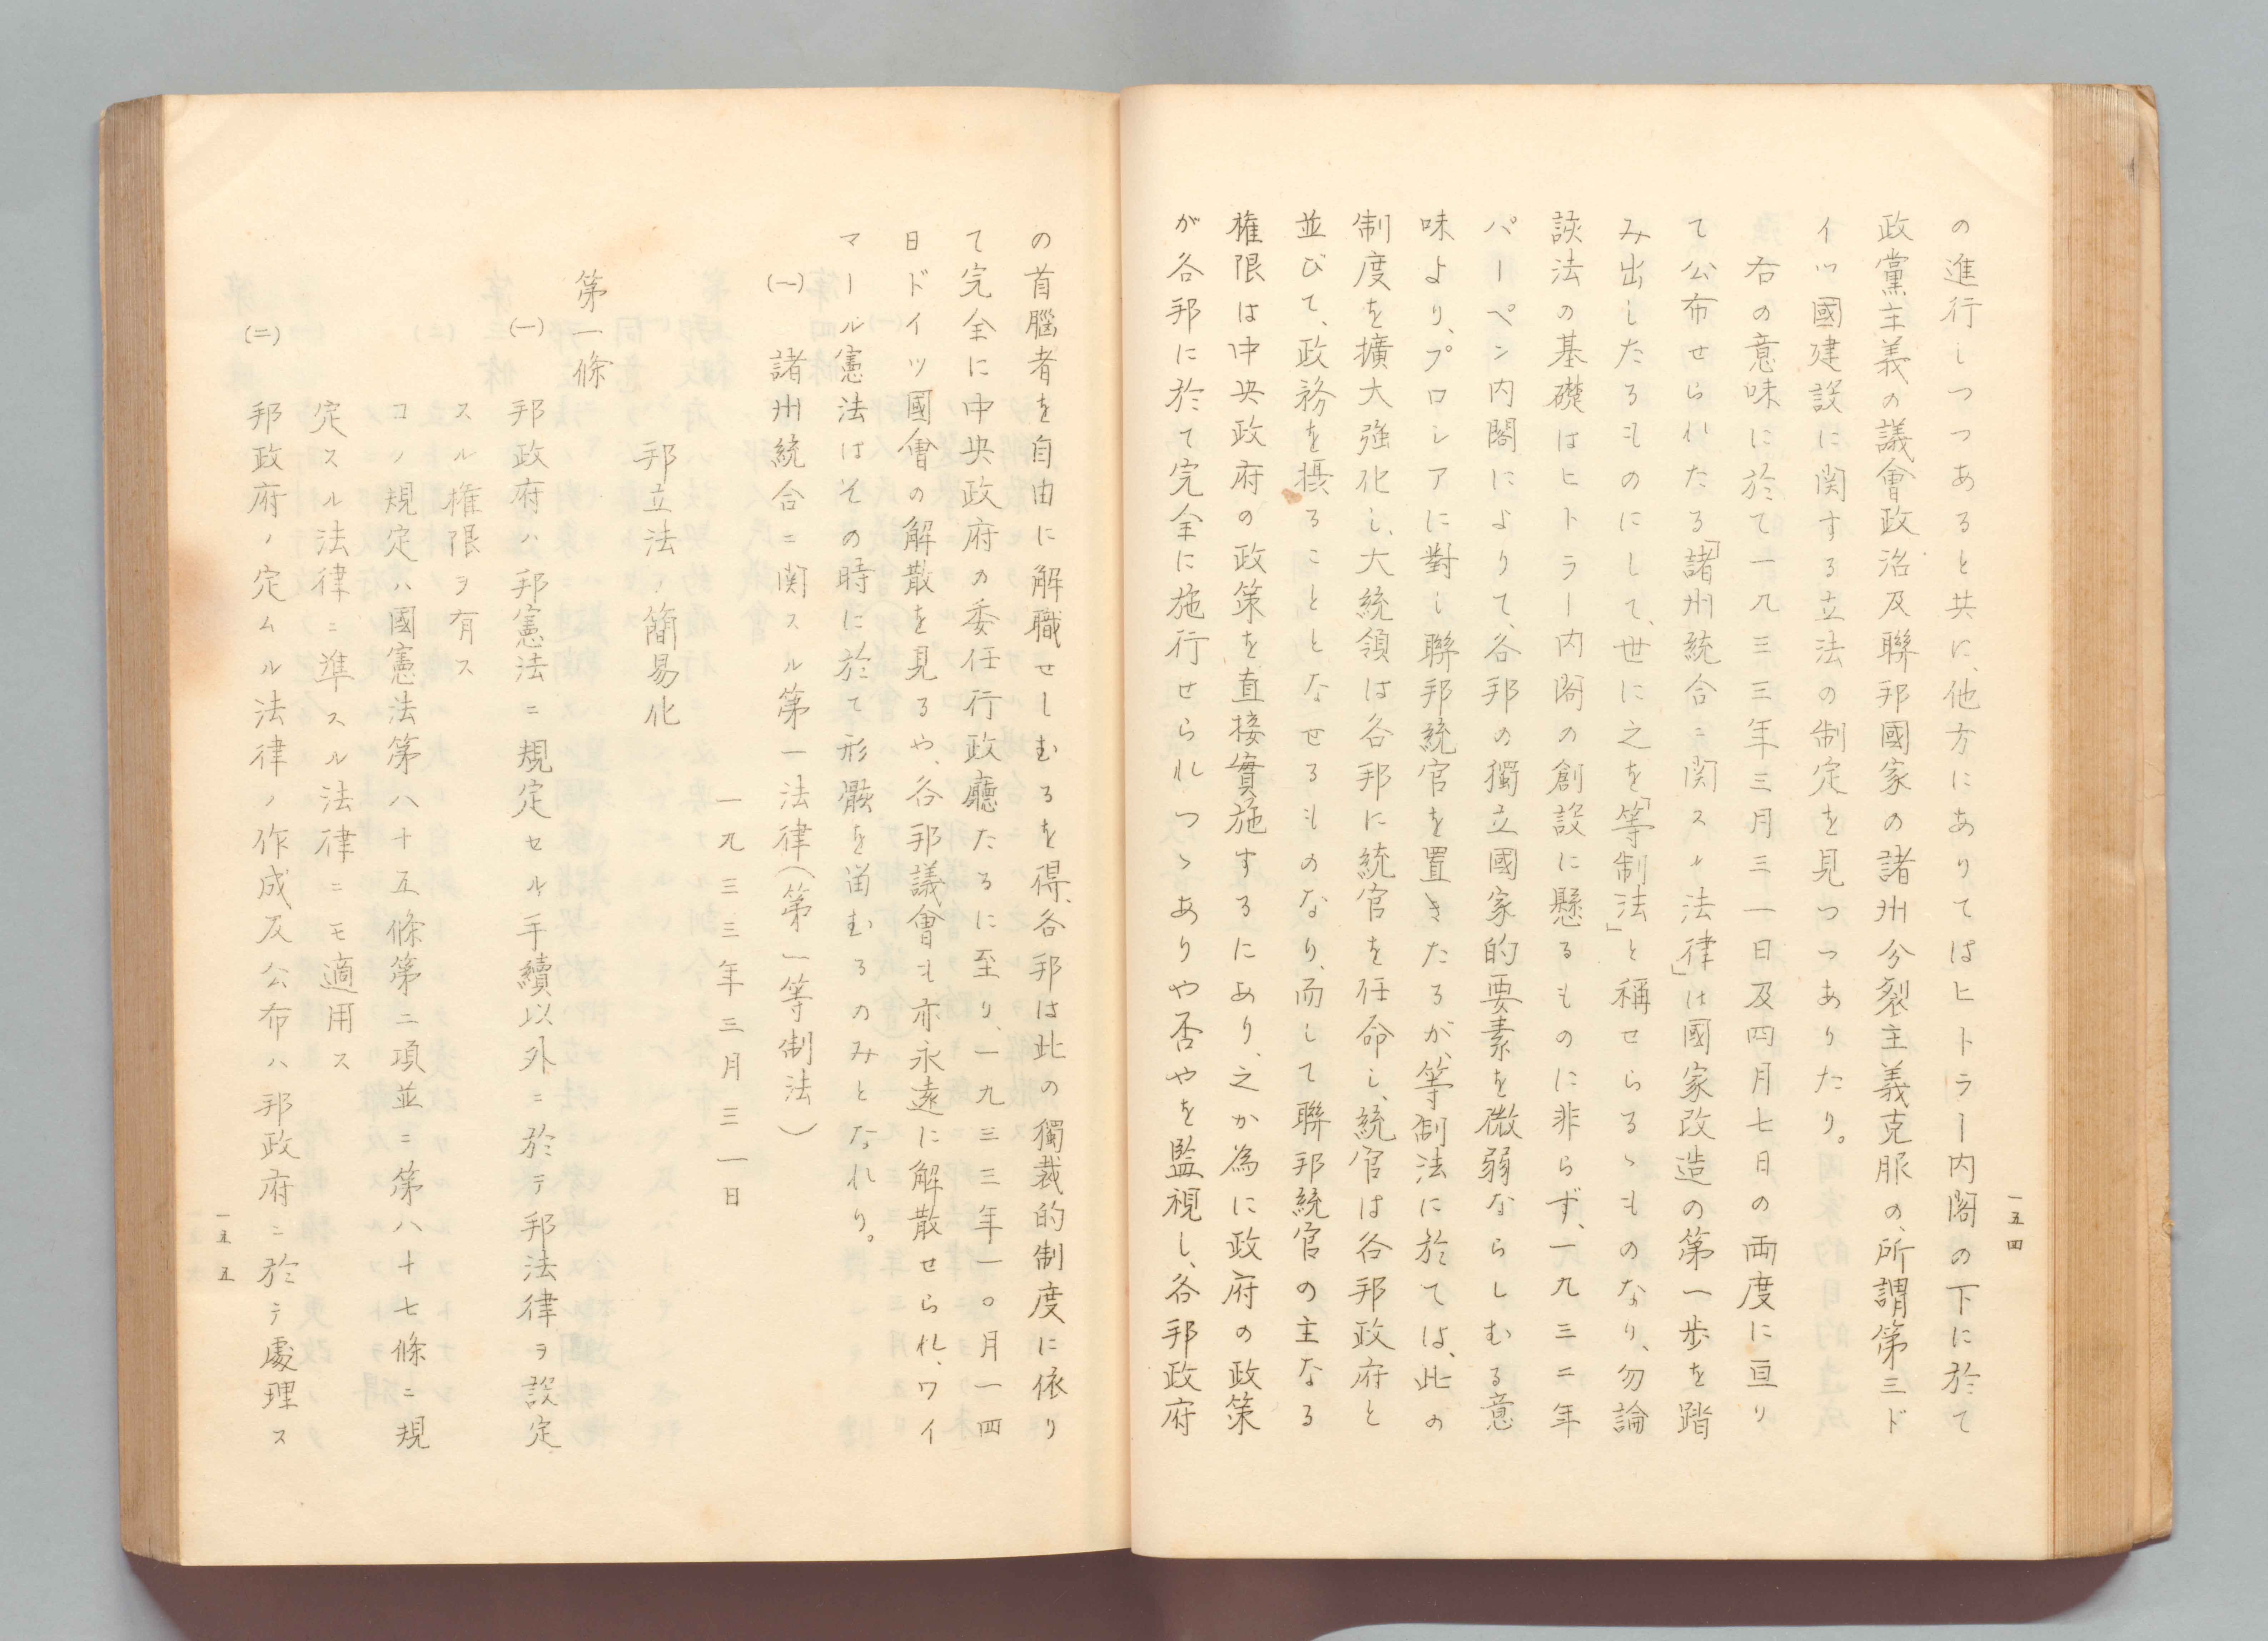 一五四
の進行しつつあると共に、他方にありてはヒトラー内閣の下に於て
政黨主義の議會政治及聯邦國家の諸州分裂主義克服の、所謂第三ド
イツ國建設に関する立法の制定を見つつありたり。
右の意味に於て一九三三年三月三一日及四月七日の両度に亘り
て公布せられたる「諸州統合ニ関スル法律」は國家改造の第一歩を踏
み出したるものにして、世に之を「等制法」と稱せらるゝものなり、勿論
該法の基礎はヒトラー内閣の創設に懸るものに非らず、一九三二年
パーペン内閣によりて、各邦の獨立國家的要素を微弱ならしむる意
味より、プロシアに對し聯邦統官を置きたるが、等制法に於ては、此の
制度を擴大強化し、大統領は各邦に統官を任命し、統官は各邦政府と
並びて、政務を摂ることとなせるものなり、而して聯邦統官の主なる
権限は中央政府の政策を直接實施するにあり、之か為に政府の政策
が各邦に於て完全に施行せられつゝありや否やを監視し、各邦政府
の首腦者を自由に解職せしむるを得、各邦は此の獨裁的制度に依り
て完全に中央政府の委任行政廳たるに至り、一九三三年一〇月一四
日ドイツ國會の解散を見るや、各邦議會も亦永遠に解散せられ、ワイ
マール憲法はその時に於て形骸を留むるのみとなれり。
(一) 諸州統合ニ関スル第一法律(第一等制法)
一九三三年三月三一日
邦立法ノ簡易化
第一條
(一) 邦政府ハ邦憲法ニ規定セル手續以外ニ於テ邦法律ヲ設定
スル権限ヲ有ス
コノ規定ハ國憲法第八十五條第二項並ニ第八十七條ニ規
定スル法律ニ準スル法律ニモ適用ス
(二) 邦政府ノ定ムル法律ノ作成及公布ハ邦政府ニ於テ處理ス
一五五